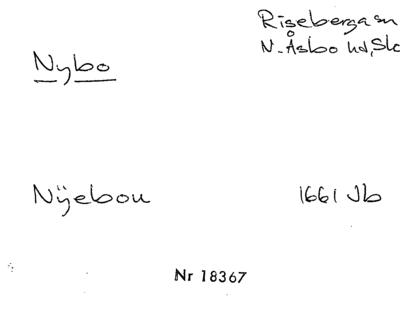 Riseberga sn
N. Åsbo hd, Sk
Nybo
Nÿebou
1661 Jb
Nr 18367